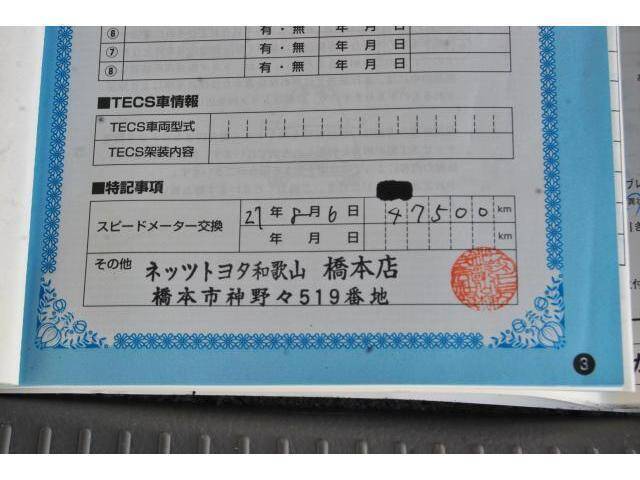 ⑥ 有・無 年 月 日
⑦ 有・無 年 月 日
⑧ 有・無 年 月 日
■TECS車情報
TECS車両型式
TECS架装内容
■特記事項
スピードメーター交換 27年 8月 6日 47500 km
年 月 日 km
その他 ネッツトヨタ和歌山 橋本店
橋本市神野々519番地
3